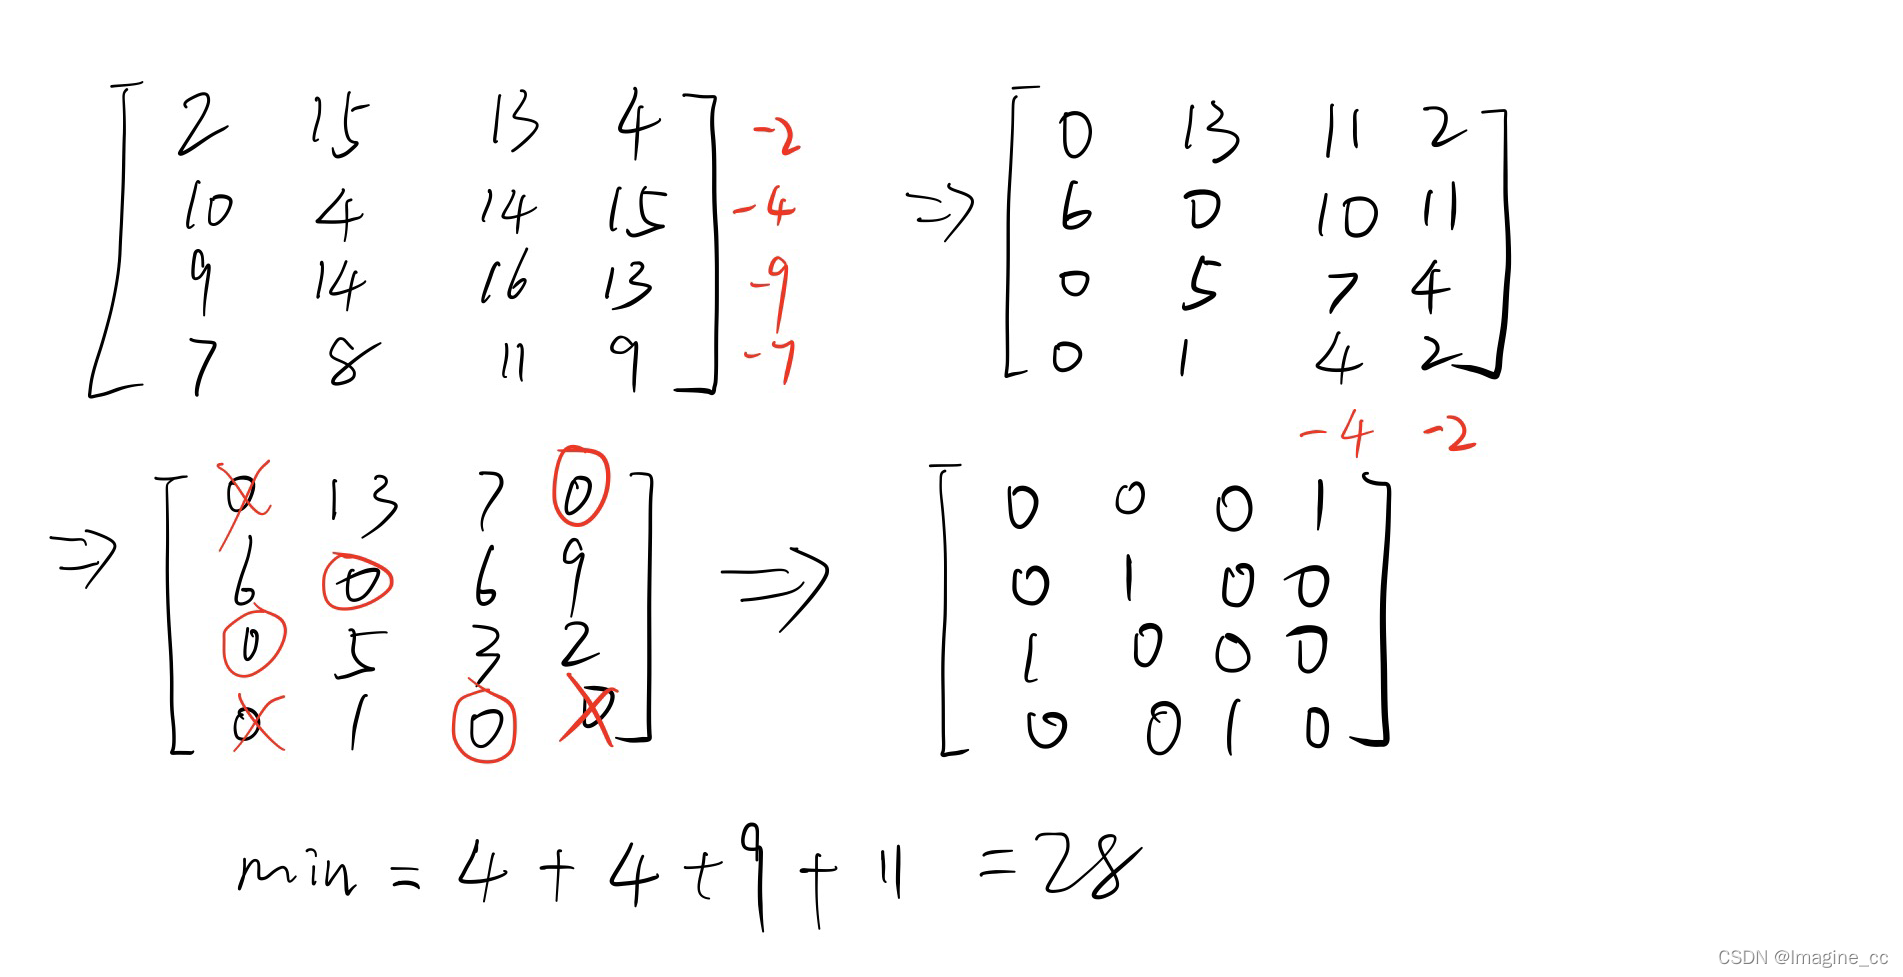 2 15 13 4 -2
10 4 14 15 -4
9 14 16 13 -9
7 8 11 9 -7
⇒
0 13 11 2
6 0 10 11
0 5 7 4
0 1 4 2
-4 -2
⇒
0 13 7 0
6 0 6 9
0 5 3 2
0 1 0 0
⇒
0 0 0 1
0 1 0 0
1 0 0 0
0 0 1 0
min = 4 + 4 + 9 + 11 = 28
CSDN @Imagine_cc